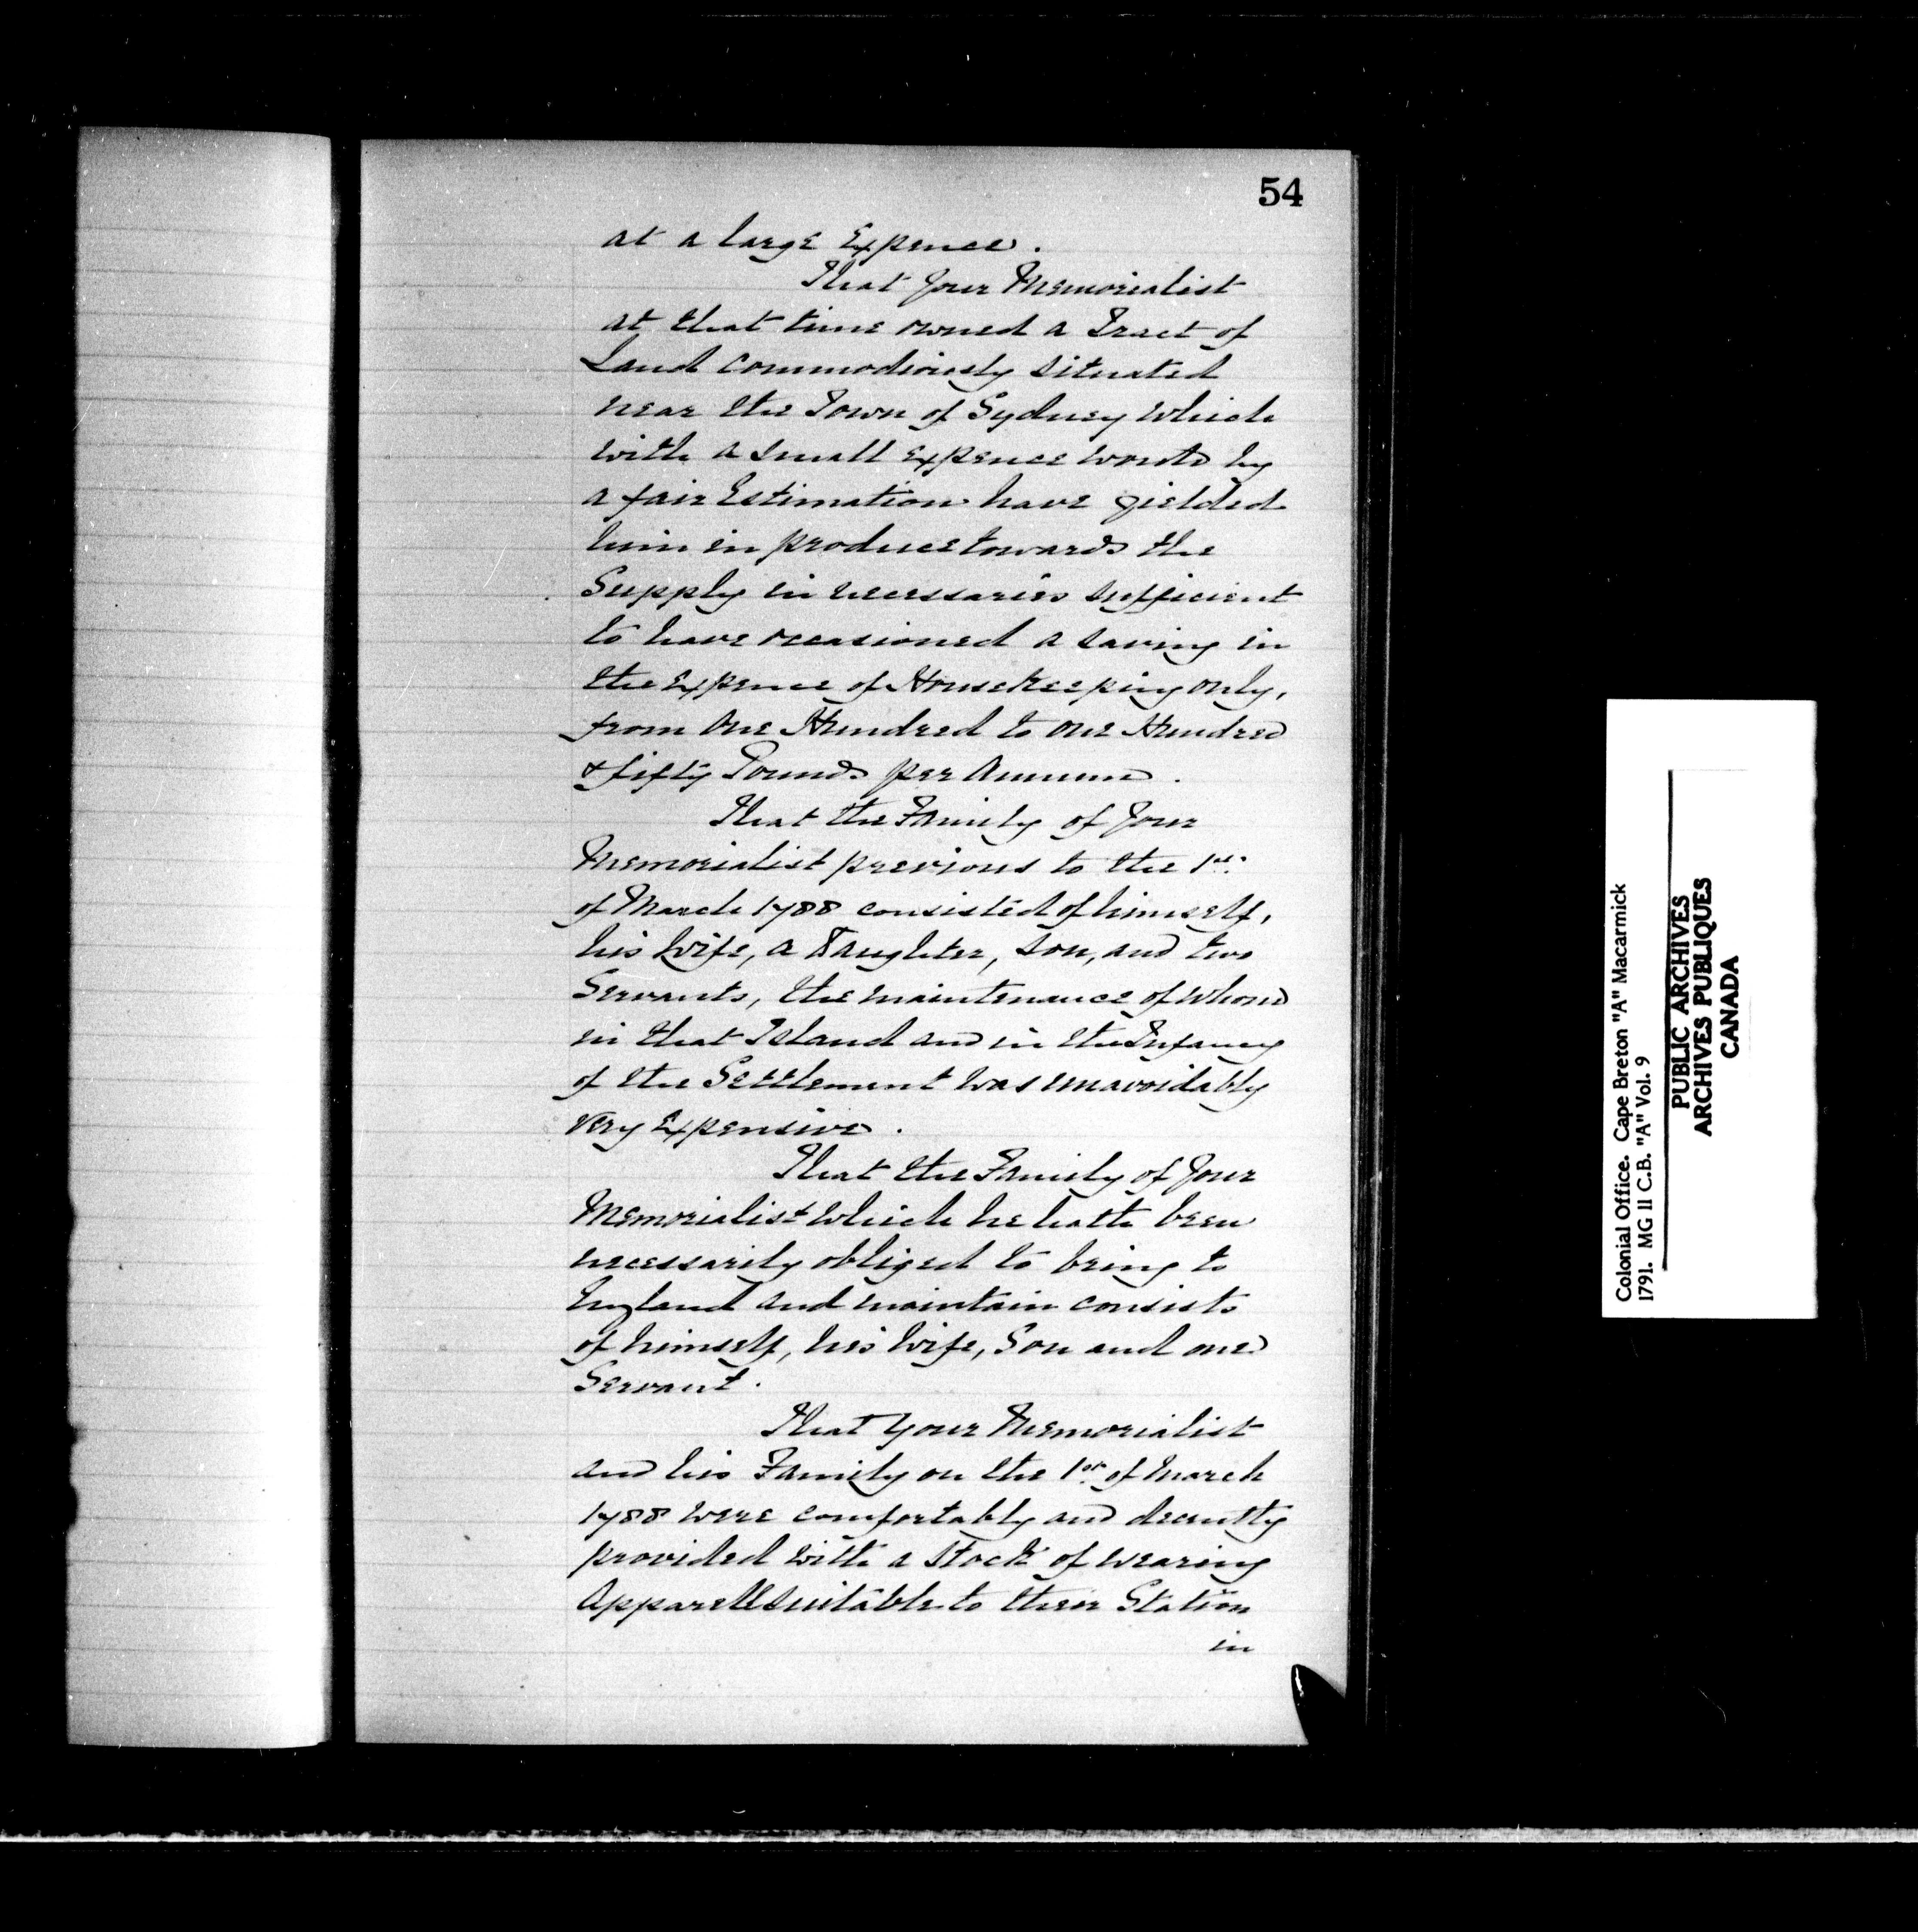 54
at a large Expence.
That Your Memorialist
at that time owned a Tract of
Land commodiously situated
near the Town of Sydney which
with a small Expence would by
a fair Estimation have yielded
him in produce towards the
Supply in necessaries sufficient
to have occasioned a saving in
the Expence of Housekeeping only,
from One Hundred to one Hundred
& fifty Pounds per Annum.
That the Family of Your
Memorialist previous to the 1st.
of March 1788 consisted of himself,
his Wife, a Daughter, Son, and two
Servants, the maintenance of whom
in that Island and in the Infancy
of the Settlement was unavoidably
very Expensive.
That the Family of Your
Memorialist which he hath been
necessarily obliged to bring to
England and maintain consists
of himself, his Wife, Son and one
Servant.
That Your Memorialist
and his Family on the 1st. of March
1788 were comfortably and decently
provided with a Stock of wearing
Apparell suitable to their Station
in
Colonial Office. Cape Breton "A" Macarmick
1791. MG 11 C.B. "A" Vol. 9
PUBLIC ARCHIVES
ARCHIVES PUBLIQUES
CANADA